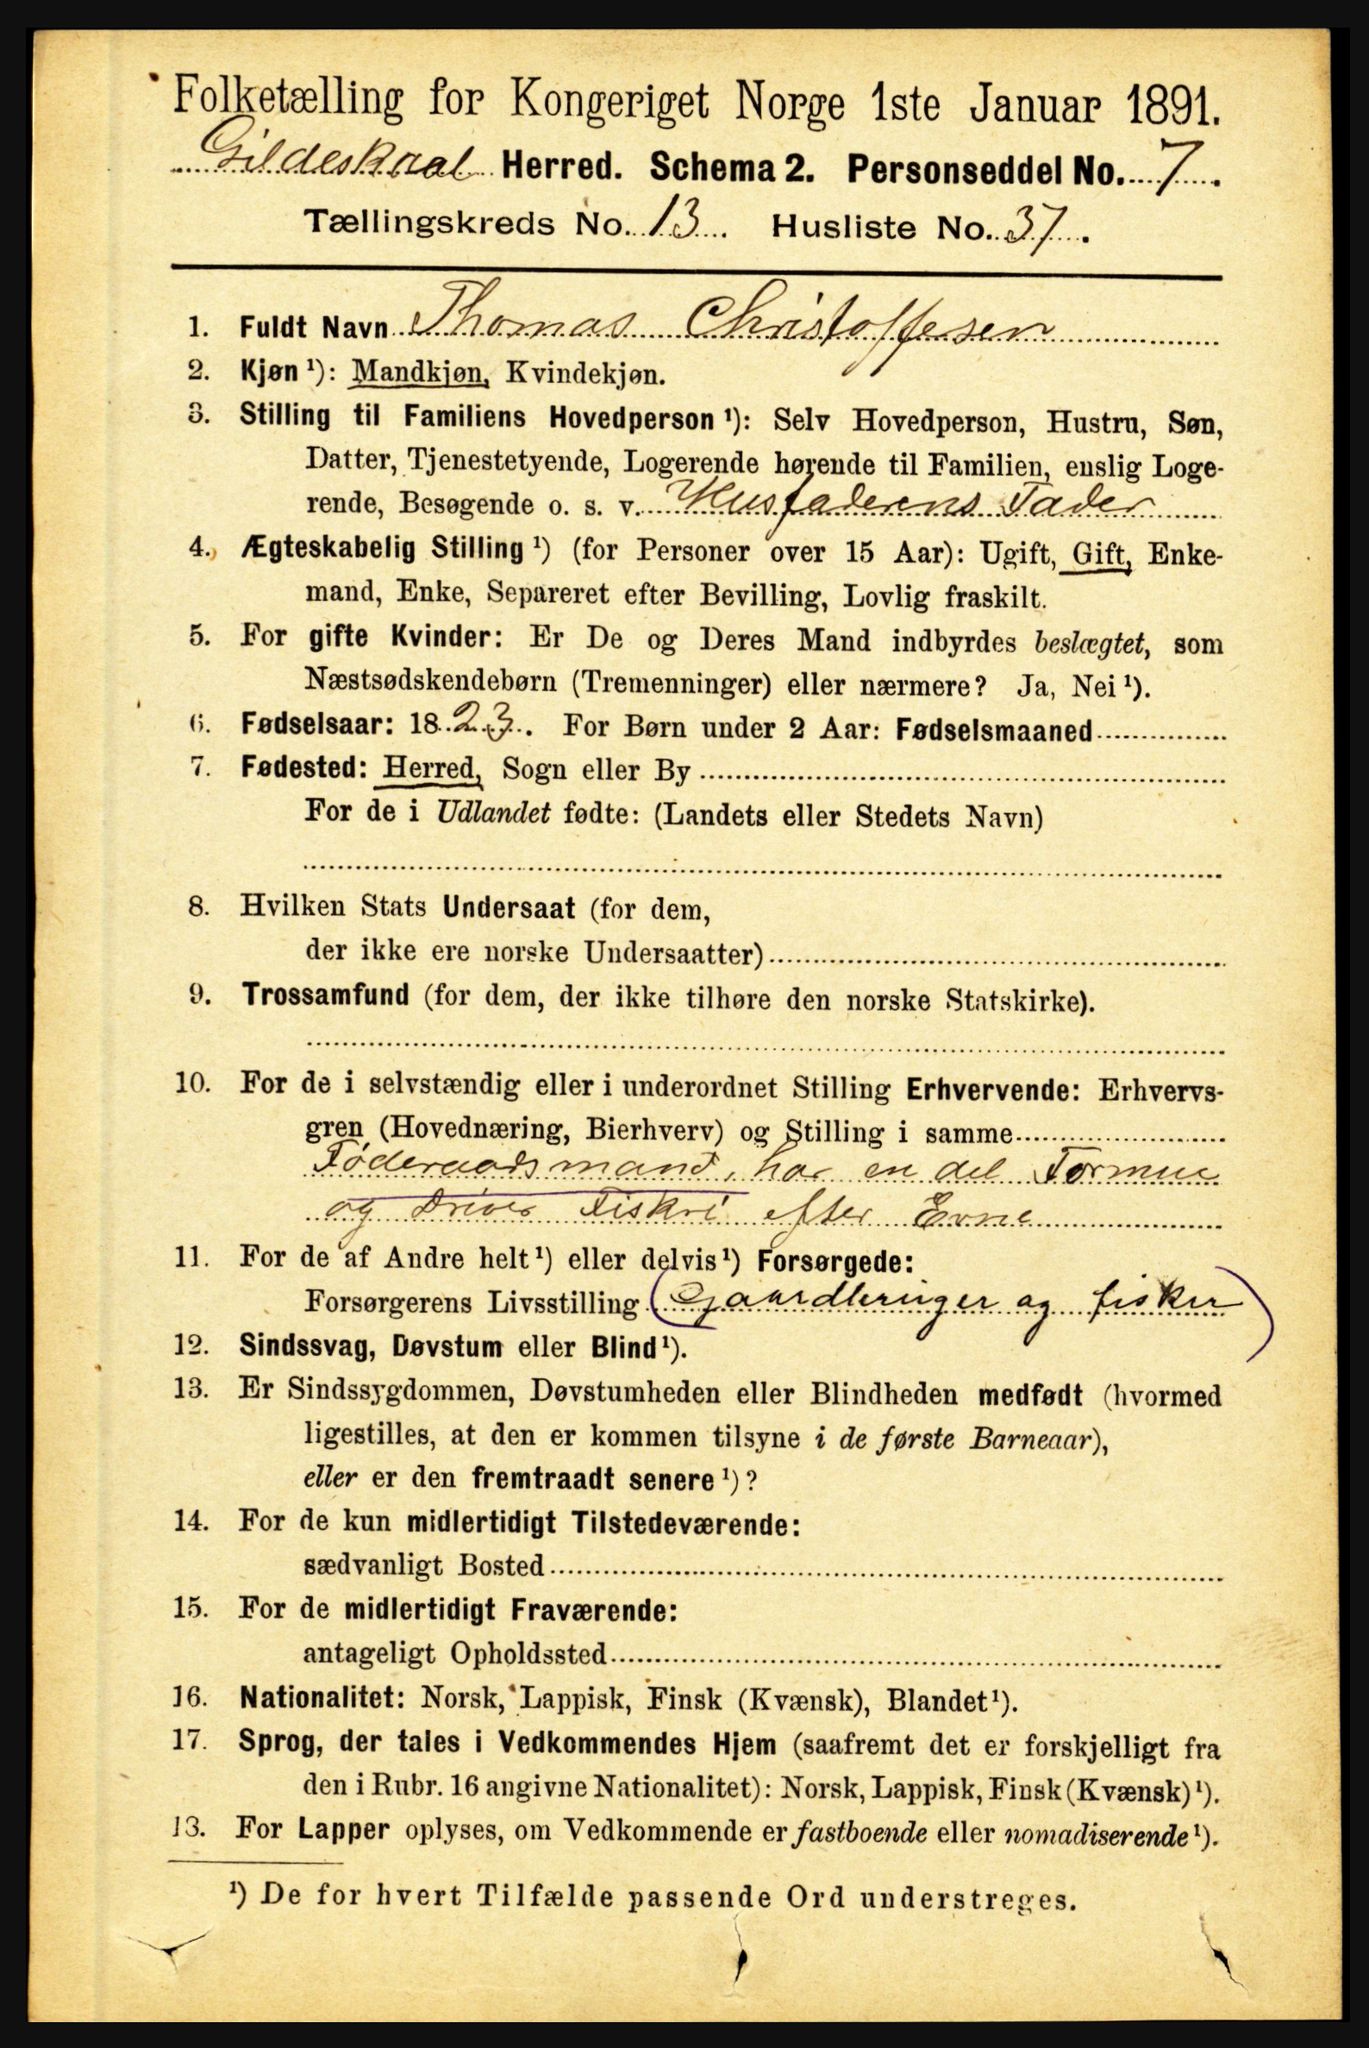 Folketælling for Kongeriget Norge 1ste Januar 1891.
Gildeskaal Herred. Schema 2. Personseddel No. 7.
Tællingskreds No. 13. Husliste No. 37.
1. Fuldt Navn Thomas Christoffersen
2. Kjøn ¹): Mandkjøn, Kvindekjøn.
3. Stilling til Familiens Hovedperson ¹): Selv Hovedperson, Hustru, Søn,
Datter, Tjenestetyende, Logerende hørende til Familien, enslig Loge-
rende, Besøgende o. s. v. Husfaderens Fader
4. Ægteskabelig Stilling ¹) (for Personer over 15 Aar): Ugift, Gift, Enke-
mand, Enke, Separeret efter Bevilling, Lovlig fraskilt.
5. For gifte Kvinder: Er De og Deres Mand indbyrdes beslægtet, som
Næstsødskendebørn (Tremenninger) eller nærmere? Ja, Nei ¹).
6. Fødselsaar: 1823. For Børn under 2 Aar: Fødselsmaaned
7. Fødested: Herred, Sogn eller By
For de i Udlandet fødte: (Landets eller Stedets Navn)
8. Hvilken Stats Undersaat (for dem,
der ikke ere norske Undersaatter)
9. Trossamfund (for dem, der ikke tilhøre den norske Statskirke).
10. For de i selvstændig eller i underordnet Stilling Erhvervende: Erhvervs-
gren (Hovednæring, Bierhverv) og Stilling i samme
Føderaadsmand, har en del Formue
og Driver Fiskri efter Evne
11. For de af Andre helt ¹) eller delvis ¹) Forsørgede:
Forsørgerens Livsstilling (Gaardbruger og fisker)
12. Sindssvag, Døvstum eller Blind ¹).
13. Er Sindssygdommen, Døvstumheden eller Blindheden medfødt (hvormed
ligestilles, at den er kommen tilsyne i de første Barneaar),
eller er den fremtraadt senere ¹)?
14. For de kun midlertidigt Tilstedeværende:
sædvanligt Bosted
15. For de midlertidigt Fraværende:
antageligt Opholdssted
16. Nationalitet: Norsk, Lappisk, Finsk (Kvænsk), Blandet ¹).
17. Sprog, der tales i Vedkommendes Hjem (saafremt det er forskjelligt fra
den i Rubr. 16 angivne Nationalitet): Norsk, Lappisk, Finsk (Kvænsk) ¹).
13. For Lapper oplyses, om Vedkommende er fastboende eller nomadiserende ¹).
¹) De for hvert Tilfælde passende Ord understreges.